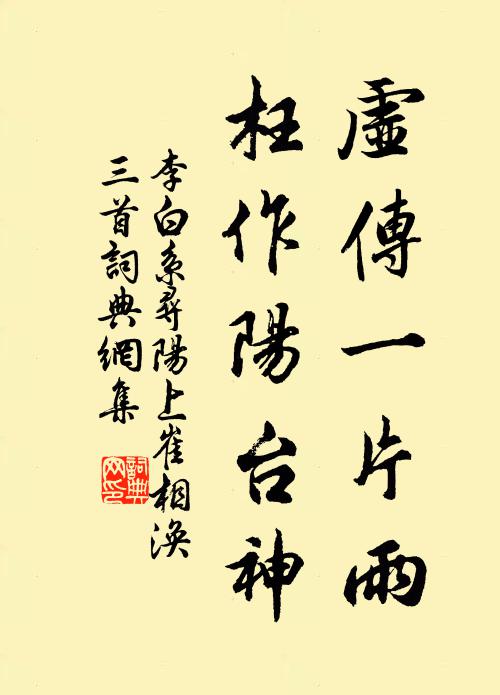 虛傳一片雨
枉作陽台神
李白系尋陽上崔相渙
三首詞典網集
詞典網印